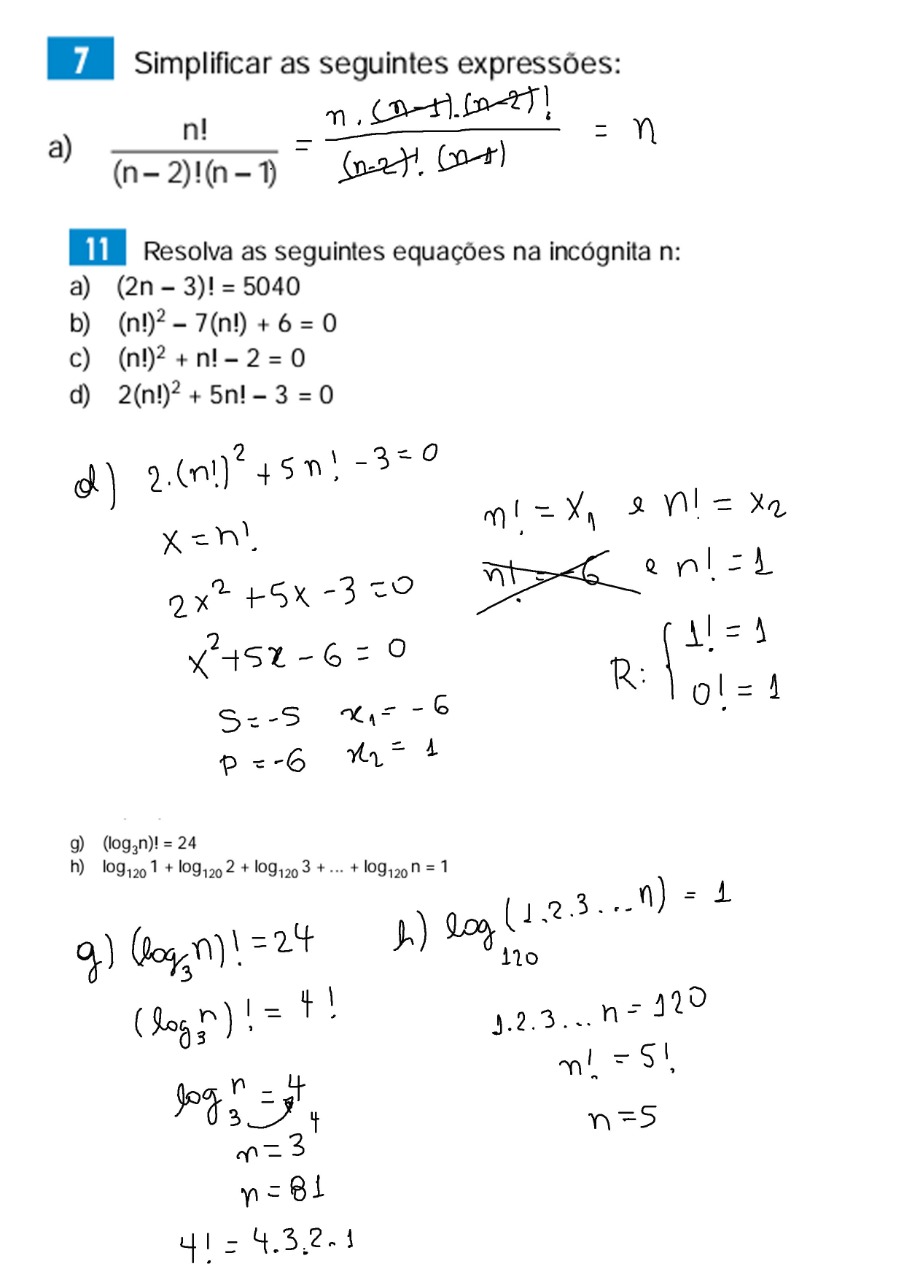 7 Simplificar as seguintes expressões:
a) n! / (n – 2)!(n – 1) = n . (n-1).(n-2)! / (n-2)! . (n-1) = n
11 Resolva as seguintes equações na incógnita n:
a) (2n – 3)! = 5040
b) (n!)² – 7(n!) + 6 = 0
c) (n!)² + n! – 2 = 0
d) 2(n!)² + 5n! – 3 = 0
d) 2.(n!)² + 5n! - 3 = 0
x = n!
2x² + 5x - 3 = 0
x² + 5x - 6 = 0
S = -5 x₁ = -6
P = -6 x₂ = 1
n! = x₁ e n! = x₂
n! = -6 e n! = 1
R: { 1! = 1
0! = 1
g) (log₃n)! = 24
h) log₁₂₀ 1 + log₁₂₀ 2 + log₁₂₀ 3 + ... + log₁₂₀ n = 1
g) (log₃n)! = 24
(log₃n)! = 4!
log₃n = 4
n = 3⁴
n = 81
4! = 4.3.2.1
h) log₁₂₀(1.2.3...n) = 1
1.2.3...n = 120
n! = 5!
n = 5